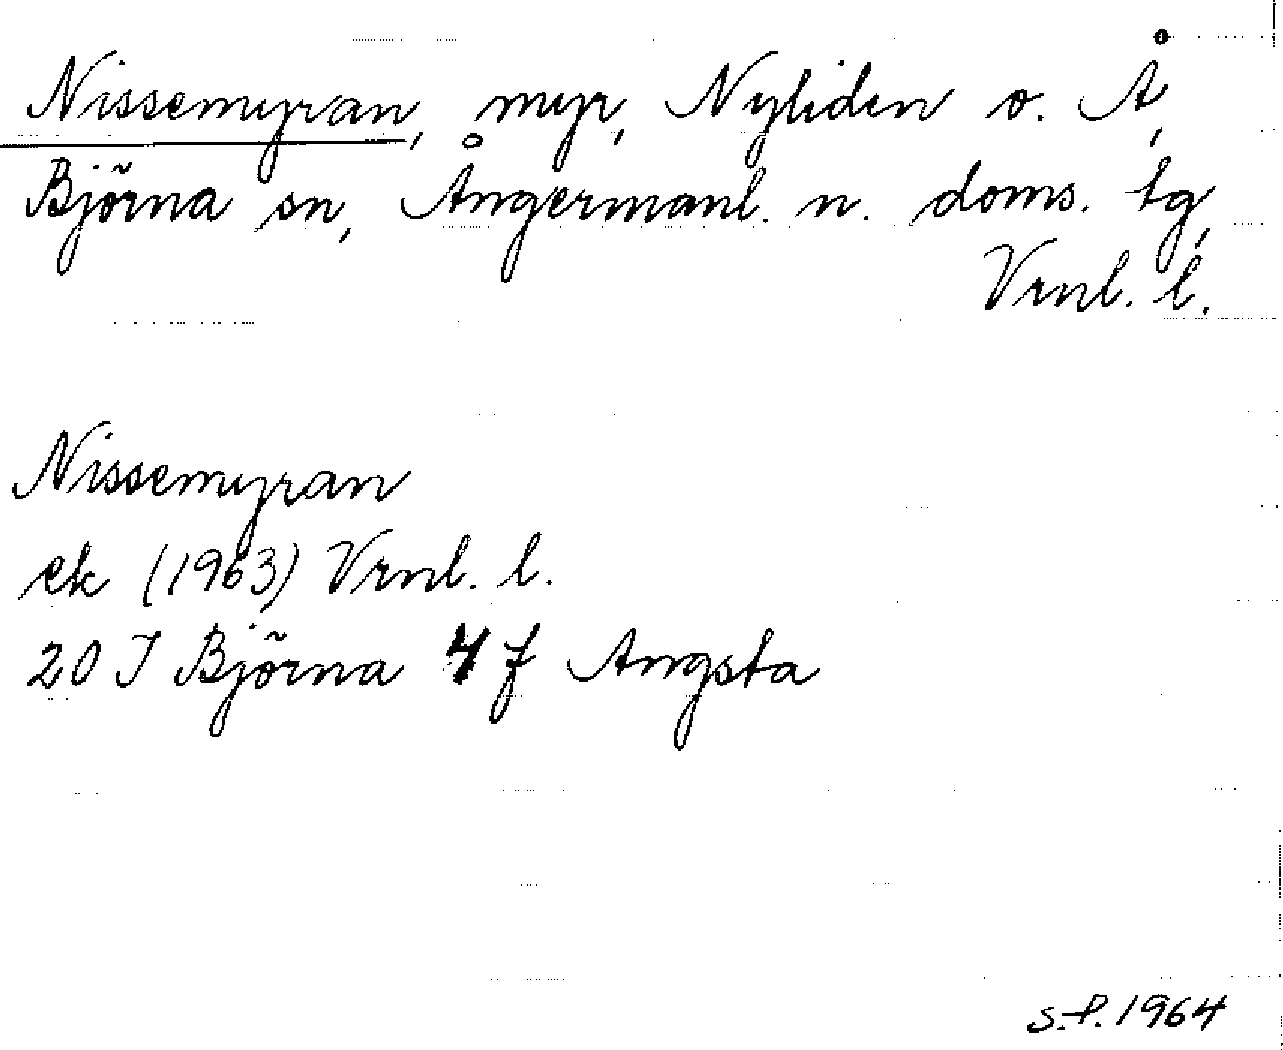 Nissemyran, myr, Nyliden o. Å,
Björna sn, Ångermanl. n. doms. tg,
Vrnl. l.
Nissemyran
ek (1963) Vrnl. l.
20 I Björna 4 f Angsta
S.P. 1964